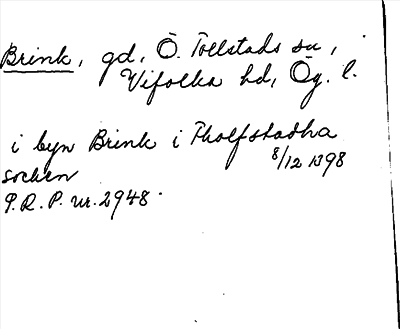 Brink, gd, Ö. Tollstads sn,
Vifolka hd, Ög. l.
i byn Brink i Tholfstadha
8/12 1398
socken
P.R.P. nr. 2948.